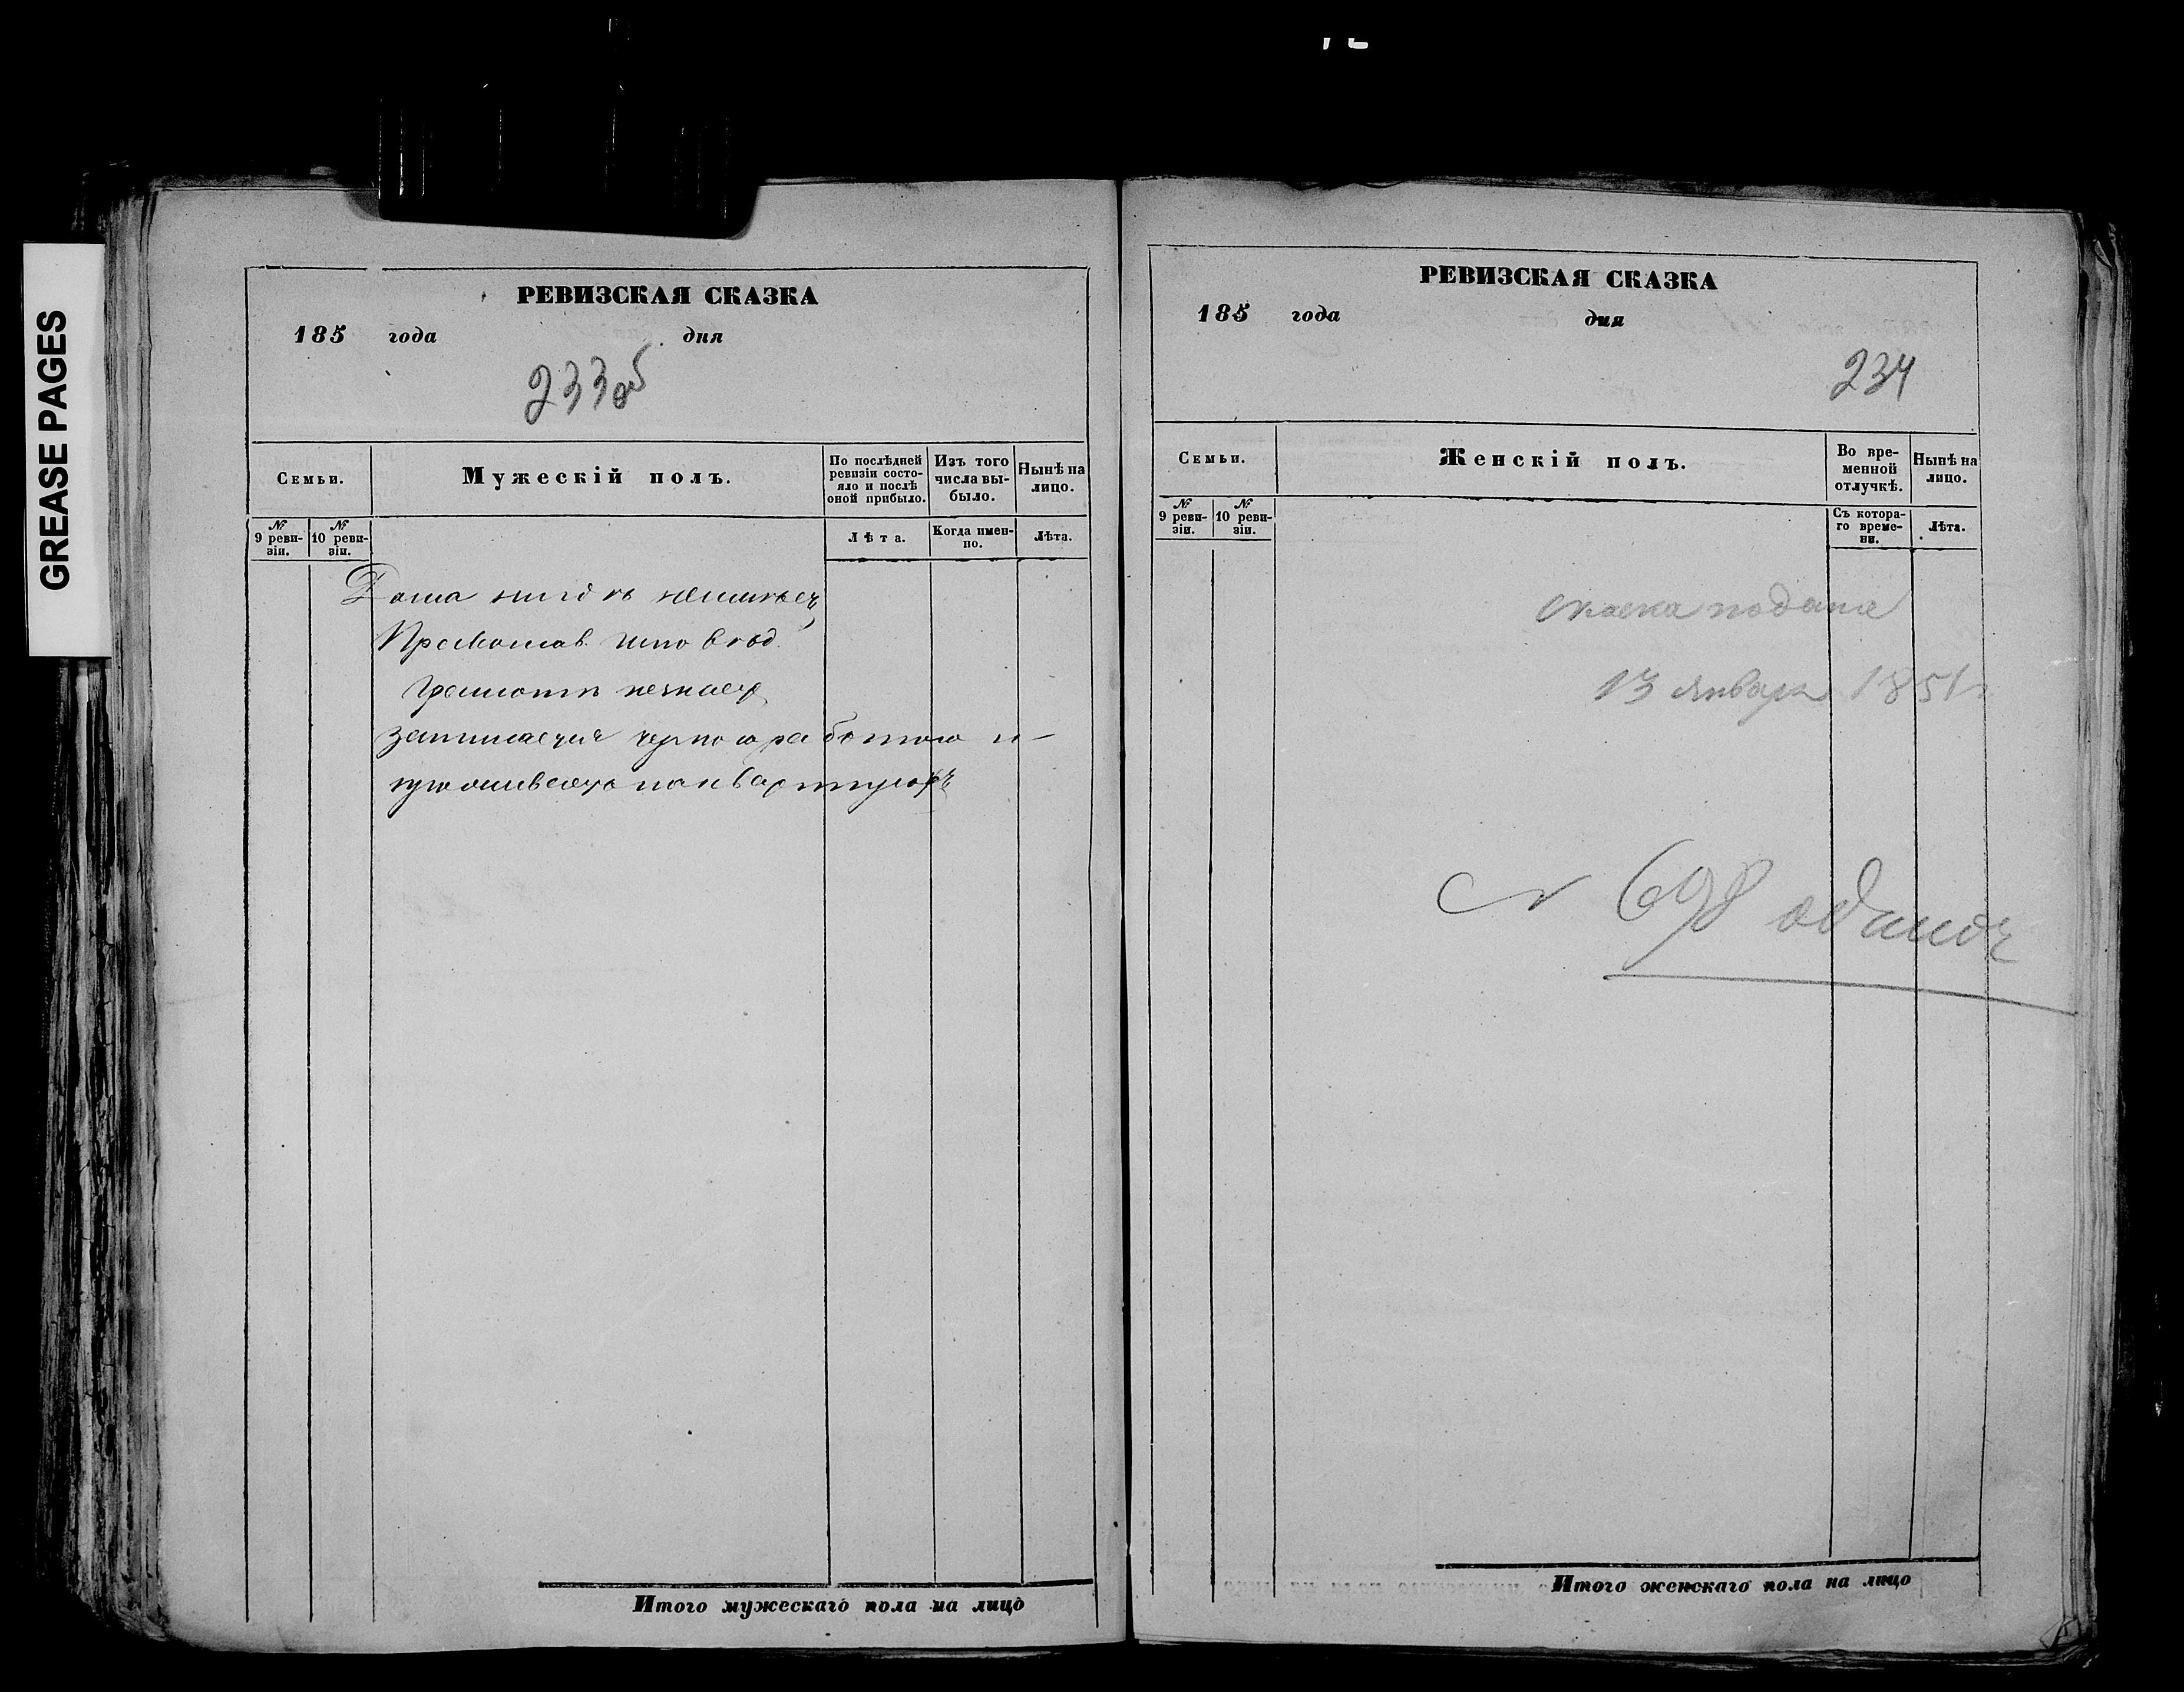 GREASE PAGES
РЕВИЗСКАЯ СКАЗКА
185 года дня
233 об
Семьи.
Мужескій полъ.
По послѣдней ревизіи состо-
яло и послѣ оной прибыло.
Изъ того числа вы-
было.
Нынѣ на лицо.
№ 9 реви-
зіи.
№ 10 реви-
зіи.
Лѣта.
Когда имен-
но.
Лѣта.
Дома нигдѣ неимѣетъ
Православ. испо
грамоты незнаетъ
занимается черною работою и
проживаетъ на квартирѣ
Итого мужескаго пола на лицо
РЕВИЗСКАЯ СКАЗКА
185 года дня
234
Семьи.
Женскій полъ.
Во вре-
менной
отлучкѣ.
Нынѣ на
лицо.
№ 9 реви-
зіи.
№ 10 реви-
зіи.
Съ котора-
го време-
ни.
Лѣта.
сказка подана
13 Января 1851 г
№ 698
Итого женскаго пола на лицо